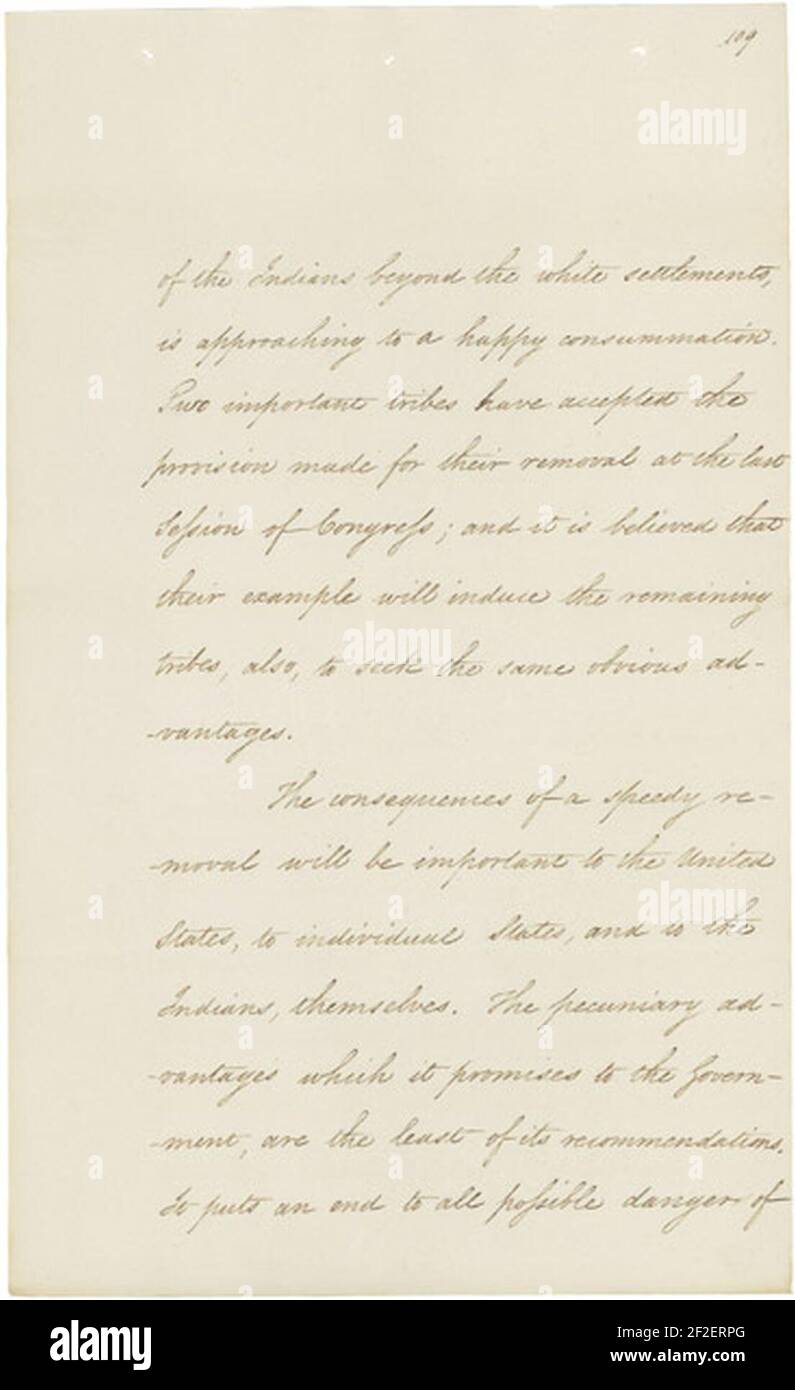 109
of the Indians beyond the white settlements,
is approaching to a happy consummation.
Two important tribes have accepted the
provision made for their removal at the last
Session of Congress; and it is believed that
their example will induce the remaining
tribes, also, to seek the same obvious ad-
-vantages.
The consequences of a speedy re-
-moval will be important to the United
States, to individual States, and to the
Indians, themselves. The pecuniary ad-
-vantages which it promises to the Govern-
-ment, are the least of its recommendations.
It puts an end to all possible danger of
alamy
a
alamy
Image ID: 2F2ERPG
www.alamy.com